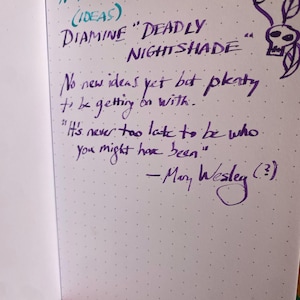 (IDEAS)
DIAMINE "DEADLY
NIGHTSHADE"
No new ideas yet but plenty
to be getting on with.
"It's never too late to be who
you might have been"
— Mary Wesley (?)